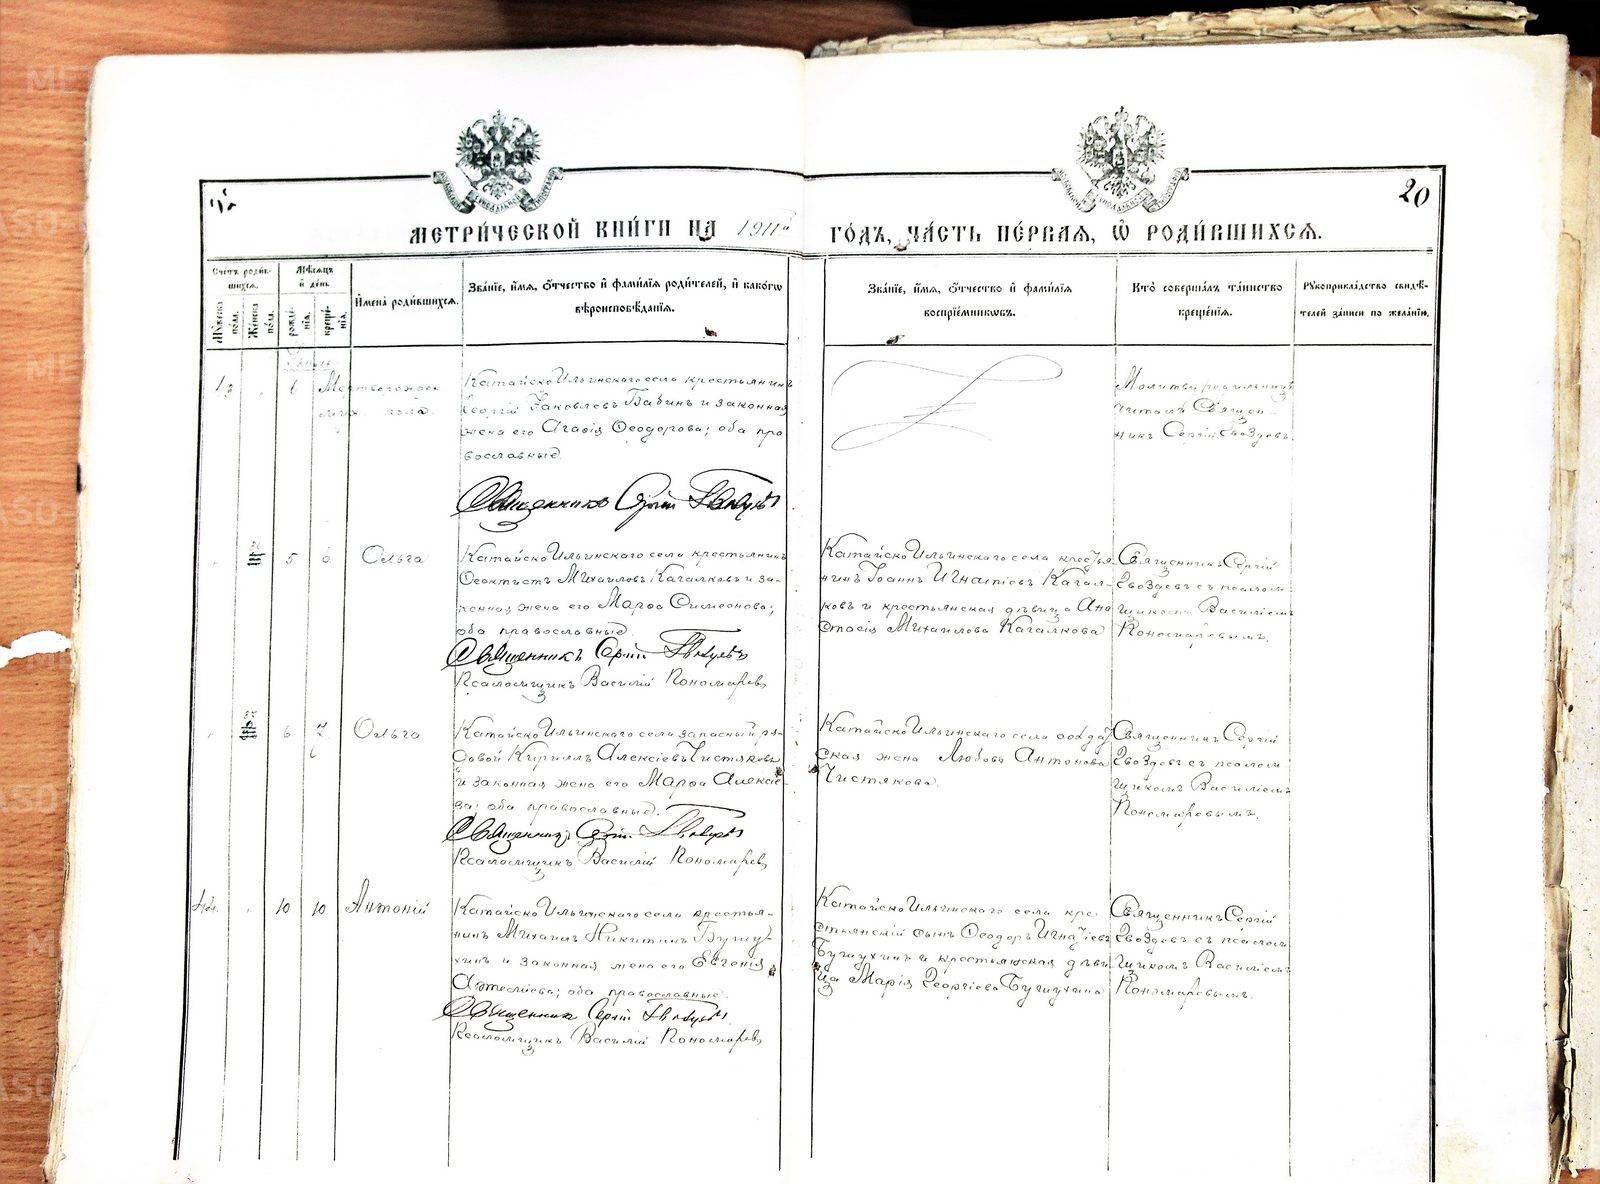 20
МЕТРИ́ЧЕСКОЙ КНИ́ГИ НА 1911й ГО́ДЪ, ЧА́СТЬ ПЕ́РВАЯ, Ѡ РОДИ́ВШИХСЯ.
Сче́тъ роди́вшихся.
Мѹжеска по́ла.
Же́нска по́ла.
Мѣ́сяцъ и́ де́нь
рожде́нія.
креще́нія.
И҆мена̀ роди́вшихся.
Зва́ніе, и҆́мя, ѻ҆́тчество и҆ фами́лія роди́телей, и҆ како́гѡ
вѣ́роисповѣ́данія.
Зва́ніе, и҆́мя, ѻ҆́тчество и҆ фами́лія
воспріе́мникѡвъ.
Кто̀ соверша́лъ та́инство
креще́нія.
Рѹкоприкла́дство свидѣ́-
телей за́писи по жела́нію.
13
6
Мертворожден
муж. пола.
Катайско Ильинскаго села крестьянинъ
Георгій Яковлевъ Бабинъ и законная
жена его Агафія Ѳеодорова; оба пра
вославные.
Священникъ Сергій Гвоздевъ
Молитву родильницѣ
читалъ Священ-
никъ Сергій Гвоздевъ.
5
6
Ольга
Катайско Ильинскаго села крестьянинъ
Ѳеоктистъ Михаиловъ Кагалковъ и за-
конная жена его Марѳа Симеонова;
оба православные.
Священникъ Сергій Гвоздевъ
Псаломщикъ Василій Пономаревъ
Катайско Ильинскаго села кресть-
нинъ Іоаннъ Игнатіевъ Кагал-
ковъ и крестьянская дѣвица Ана
стасія Михаилова Кагалкова
Священникъ Сергій
Гвоздевъ съ псалом-
щикомъ Василіемъ
Пономаревымъ.
6
7
Ольга
Катайско Ильинскаго села запасный ря-
довой Кириллъ Алексіевъ Чистяковъ
и законная жена его Марѳа Алексіе
ва; оба православные.
Священникъ Сергій Гвоздевъ
Псаломщикъ Василій Пономаревъ
Катайско Ильинскаго села солдат
ская жена Любовь Антонова
Чистякова.
Священникъ Сергій
Гвоздевъ съ псалом
щикомъ Василіемъ
Пономаревымъ.
10
10
Антоній
Катайско Ильинскаго села крестья-
нинъ Михаилъ Никитинъ Бушу-
хинъ и законная жена его Евгенія
оба православные.
Священникъ Сергій Гвоздевъ
Псаломщикъ Василій Пономаревъ
Катайско Ильинскаго села кре
стьянскій сынъ Ѳеодоръ Игнатіевъ
Бушухинъ и крестьянская дѣви
ца Марія Георгіева Бушухина
Священникъ Сергій
Гвоздевъ съ псалом
щикомъ Василіемъ
Пономаревымъ.